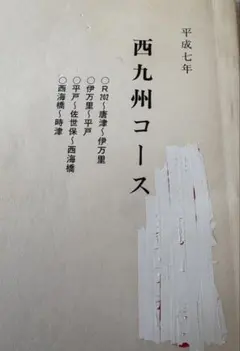 平成七年
西九州コース
○R202〜唐津〜伊万里
○伊万里〜平戸
○平戸〜佐世保〜西海橋
○西海橋〜時津